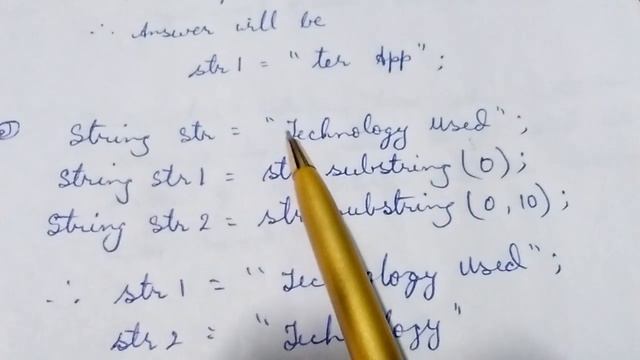 ∴ Answer will be
str1 = "ter App";
String str = "Technology used";
String str1 = str substring (0);
String str2 = str substring (0,10);
∴ str1 = "Technology used";
str2 = "Technology"